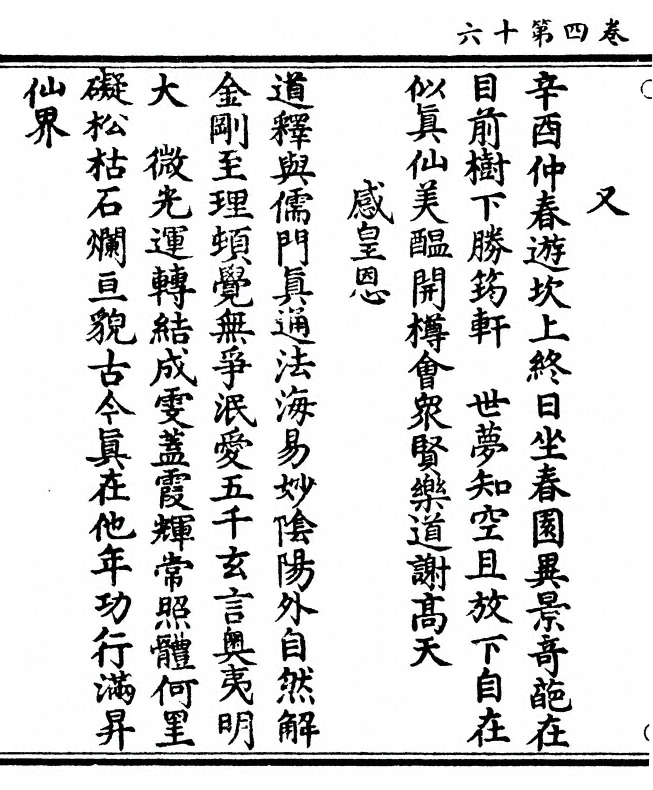 卷四第十六
又
辛酉仲春遊坎上終日坐春園異景奇葩在
目前樹下勝筠軒　世夢知空且放下自在
似眞仙美醞開樽會眾賢樂道謝高天
感皇恩
道釋與儒門眞通法海易妙陰陽外自然解
金剛至理頓覺無爭泯愛五千玄言奧夷明
大　微光運轉結成雯蓋霞輝常照體何罣
礙松枯石爛亘貌古今眞在他年功行滿昇
仙界